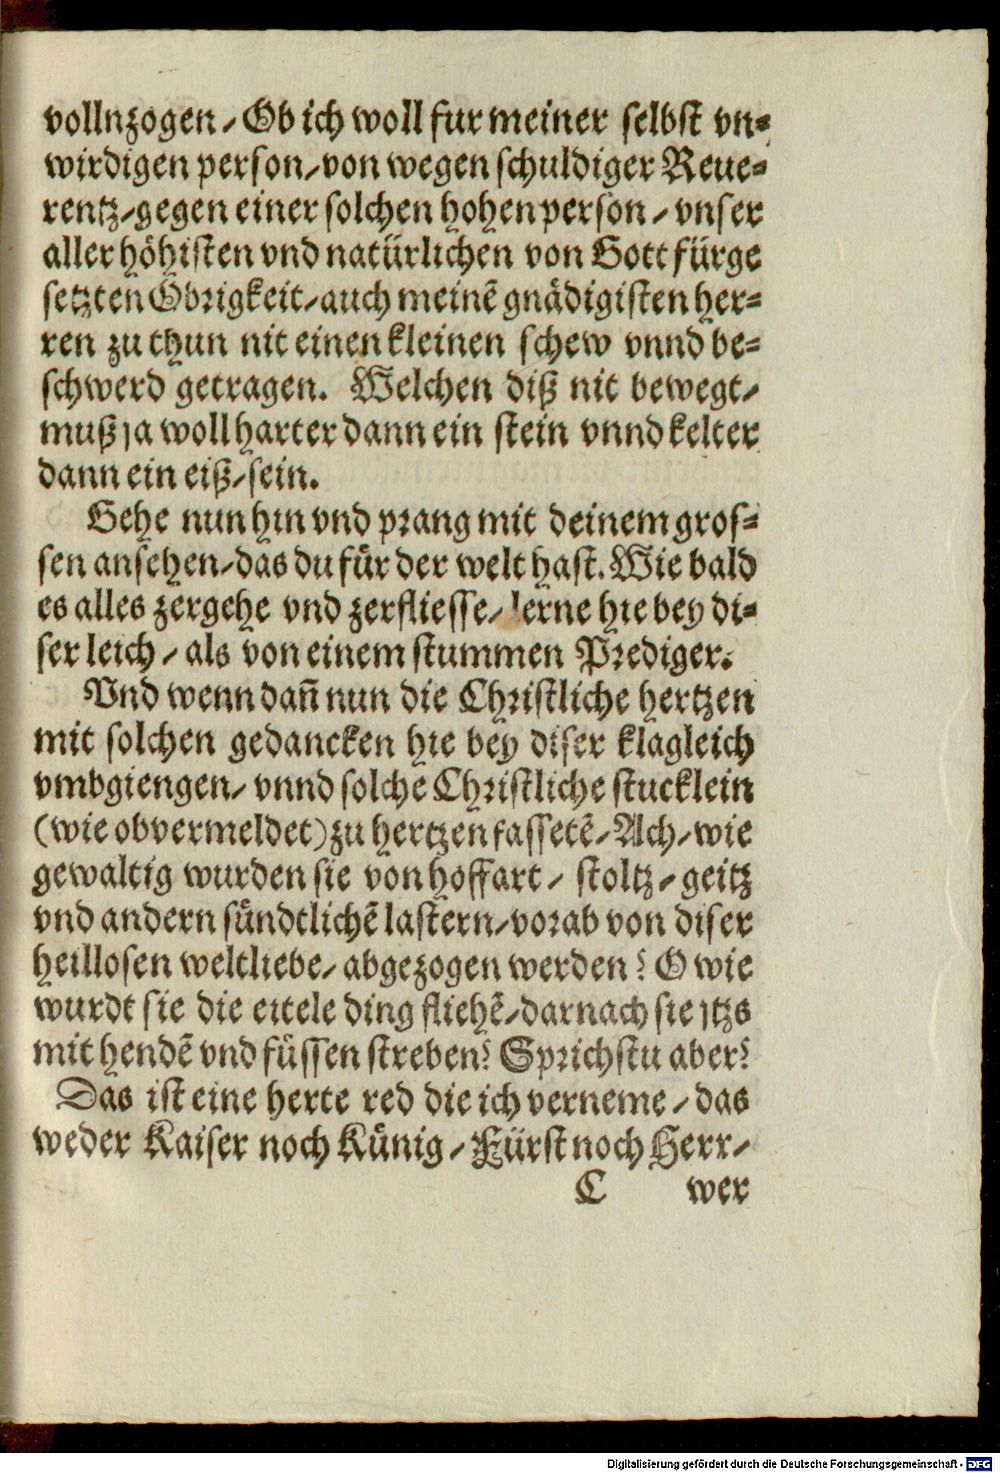 vollnzogen/ Ob ich woll fur meiner selbst vn-
wirdigen person/ von wegen schuldiger Reue-
rentz/ gegen einer solchen hohen person/ vnser
aller höhisten vnd natürlichen von Gott fürge
setzten Obrigkeit/ auch meinẽ gnädigisten her-
ren zu thun nit einen kleinen schew vnnd be-
schwerd getragen. Welchen diß nit bewegt/
muß ja woll harter dann ein stein vnnd kelter
dann ein eiß/ sein.
Gehe nun hin vnd prang mit deinem gros-
sen ansehen/ das du für der welt hast. Wie bald
es alles zergehe vnd zerfliesse/ lerne hie bey di-
ser leich/ als von einem stummen Prediger.
Vnd wenn dañ nun die Christliche hertzen
mit solchen gedancken hie bey diser klagleich
vmbgiengen/ vnnd solche Christliche stucklein
(wie obvermeldet) zu hertzen fassetẽ/ Ach/ wie
gewaltig wurden sie von hoffart/ stoltz/ geitz
vnd andern sündtlichẽ lastern/ vorab von diser
heillosen weltliebe/ abgezogen werden? O wie
wurdt sie die eitele ding fliehẽ/ darnach sie jtzs
mit hendẽ vnd füssen streben? Sprichstu aber?
Das ist eine herte red die ich verneme/ das
weder Kaiser noch Künig/ Fürst noch Herr/
C wer
Digitalisierung gefördert durch die Deutsche Forschungsgemeinschaft - DFG